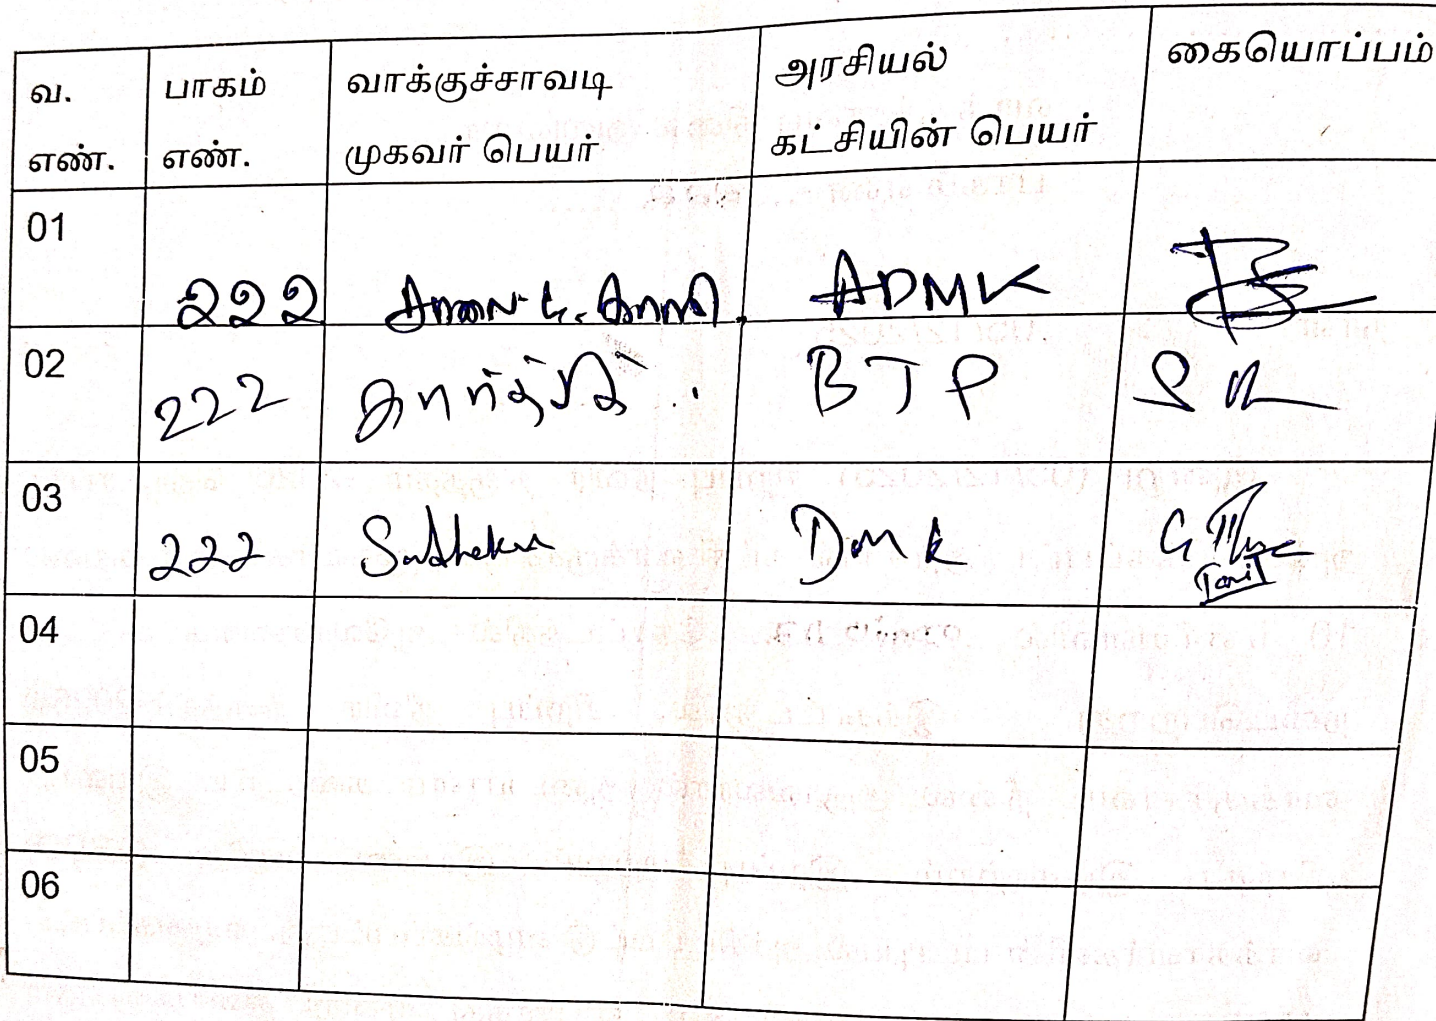 வ. எண். பாகம் எண். வாக்குச்சாவடி முகவர் பெயர் அரசியல் கட்சியின் பெயர் கையொப்பம்
01 222 ADMK
02 222 கார்த்திக் . BJP
03 222 DMK
04
05
06